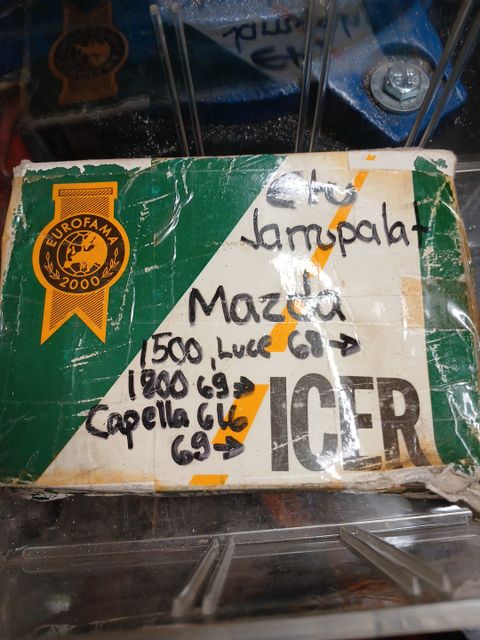 EUROFAMA
2000
Etu
Jarrupalat
Mazda
1500, Luce 68→
1800 69→
Capella 616
69→
ICER